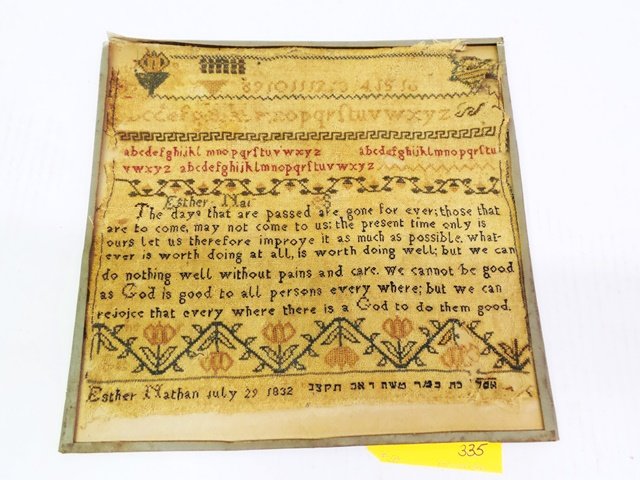 8 9 10 11 12 13 14 15 16
bcdefghijk mnopqrſtuvwxyz
abcdefghijkl mnopqrſtuvwxyz abcdefghijklmnopqrſtu
vwxyz abcdefghijklmnopqrſtuvwxyz
Esther Nat
The days that are passed are gone for ever; those that
are to come, may not come to us; the present time only is
ours let us therefore improve it as much as possible, what-
ever is worth doing at all, is worth doing well; but we can
do nothing well without pains and care. We cannot be good
as God is good to all persons every where; but we can
rejoice that every where there is a God to do them good.
Esther Nathan July 29 1832 בת משה תקצב
335